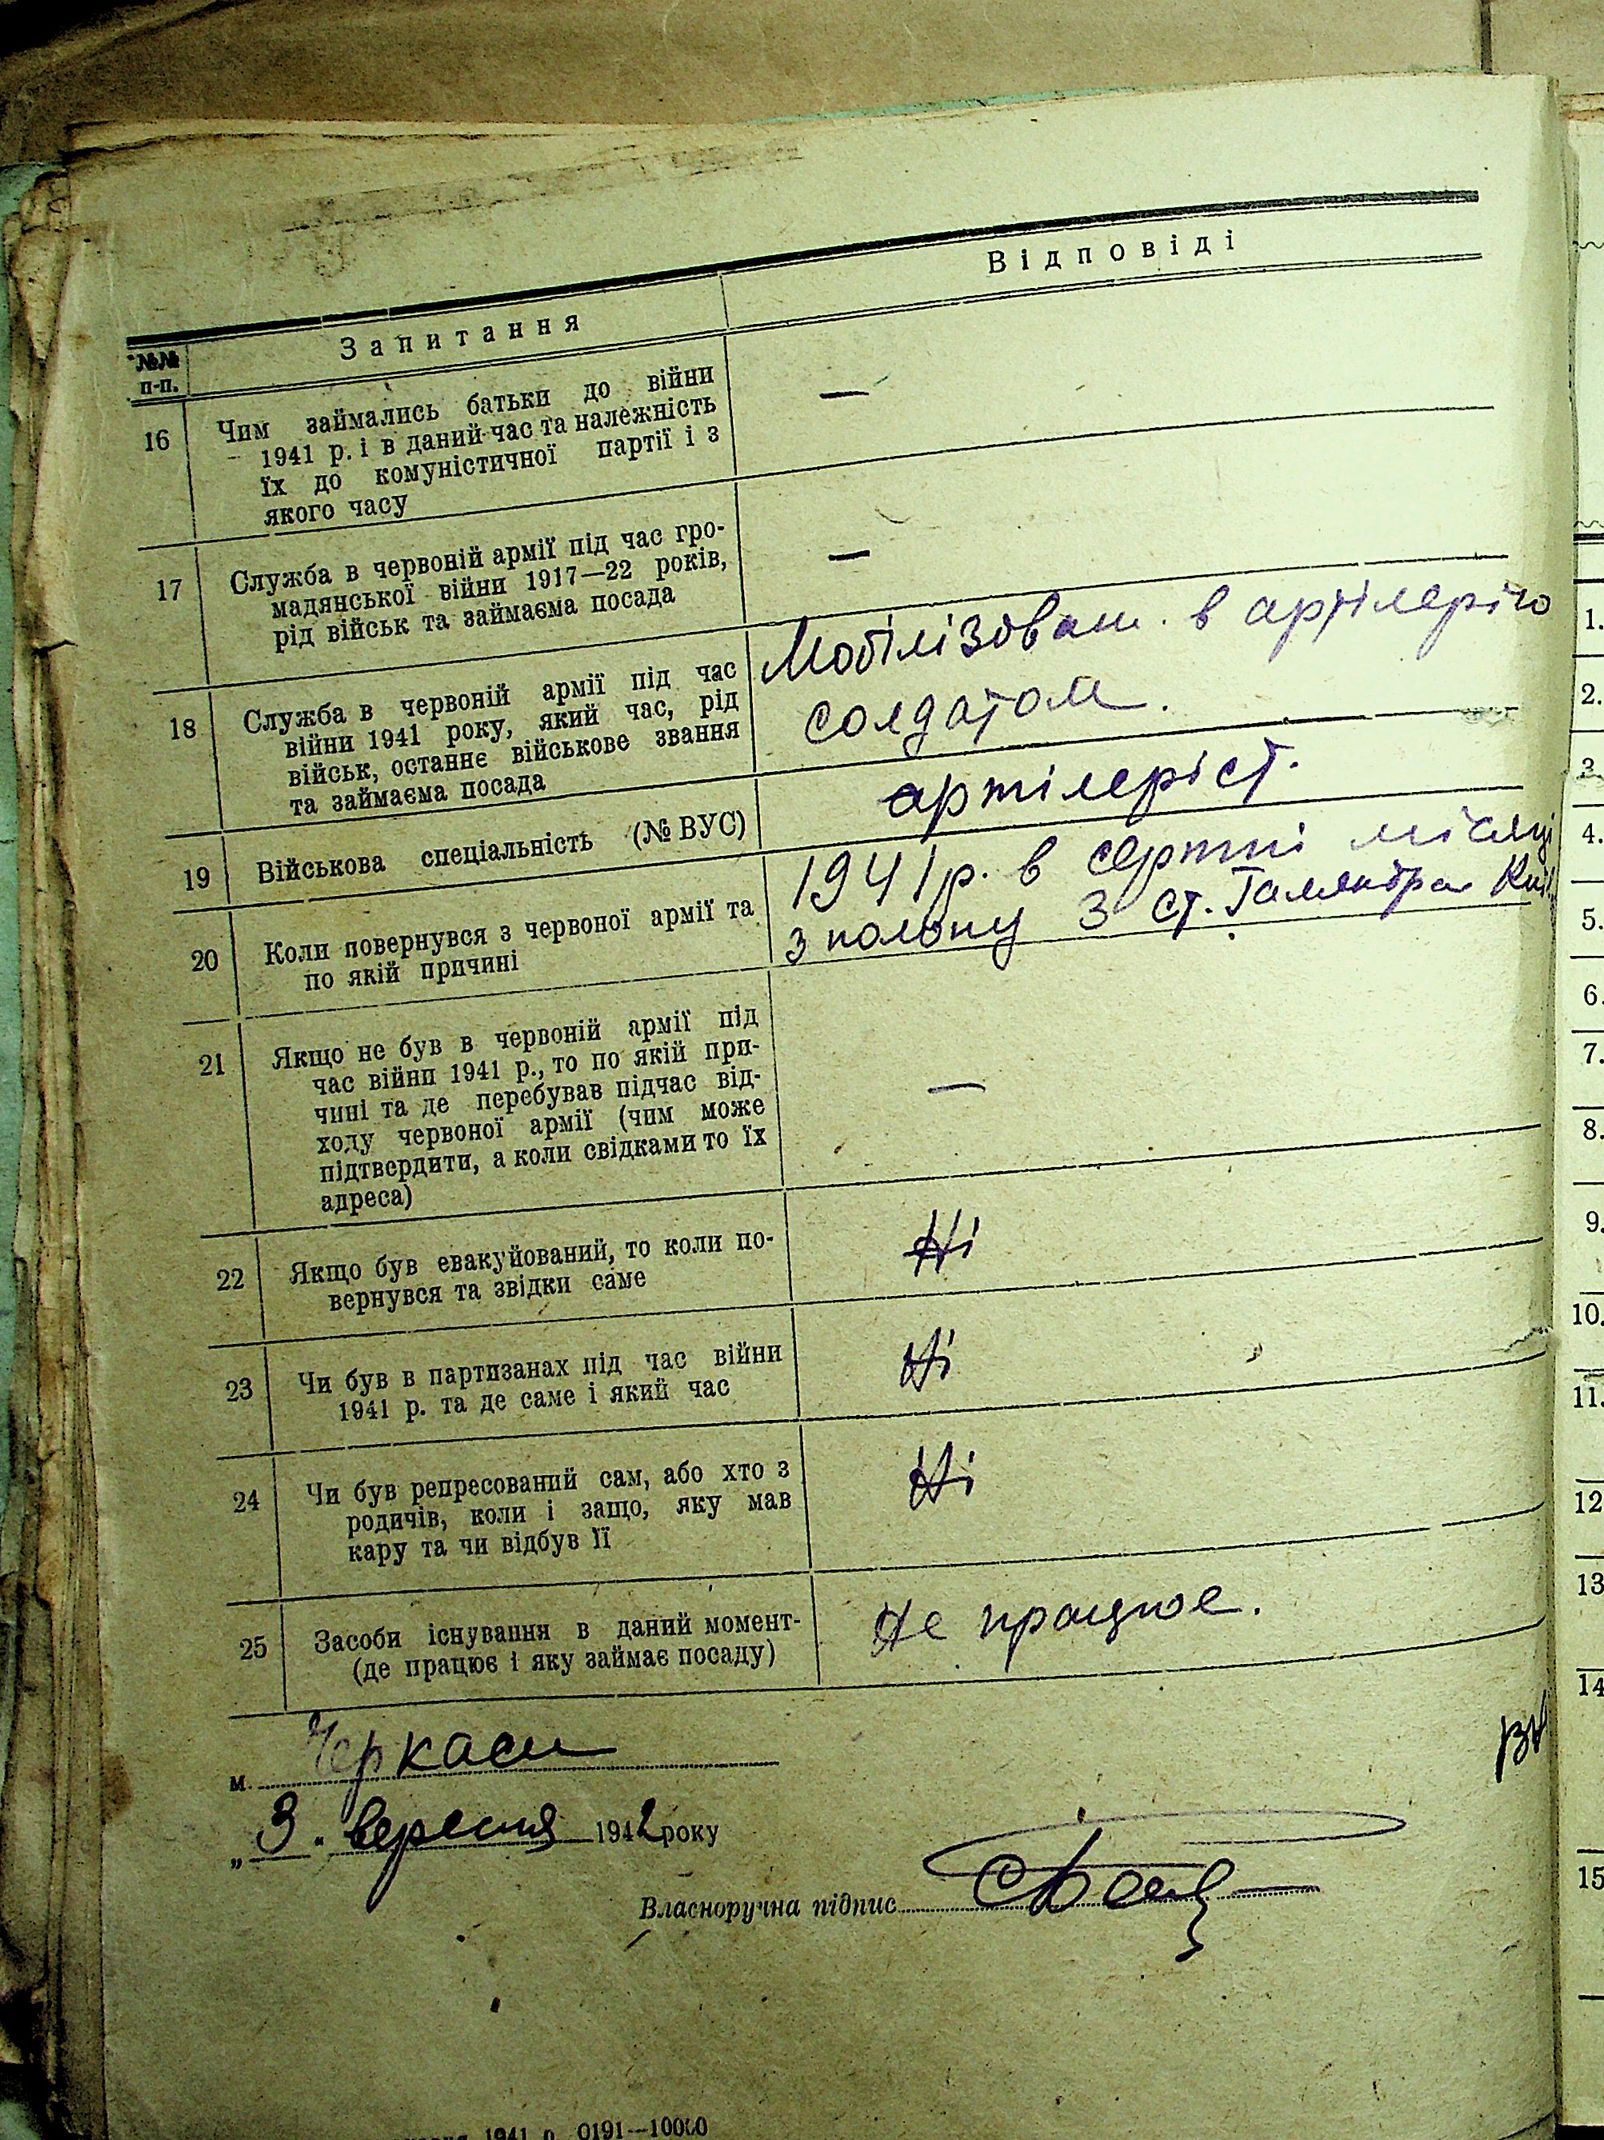 №№ п-п.
Запитання
Відповіді
16
Чим займались батьки до війни
1941 р. і в даний час та належність
їх до комуністичної партії і з
якого часу
—
17
Служба в червоній армії під час гро-
мадянської війни 1917—22 років,
рід військ та займаєма посада
—
18
Служба в червоній армії під час
війни 1941 року, який час, рід
військ, останнє військове звання
та займаєма посада
Мобілізован. в артілерію
солдатом.
19
Військова спеціальність (№ ВУС)
артілеріст.
20
Коли повернувся з червоної армії та
по якій причині
1941 р. в серпні місяці
з полону з ст.
21
Якщо не був в червоній армії під
час війни 1941 р., то по якій при-
чині та де перебував підчас від-
ходу червоної армії (чим може
підтвердити, а коли свідками то їх
адреса)
—
22
Якщо був евакуйований, то коли по-
вернувся та звідки саме
Ні
23
Чи був в партизанах під час війни
1941 р. та де саме і який час
Ні
24
Чи був репресований сам, або хто з
родичів, коли і защо, яку мав
кару та чи відбув її
Ні
25
Засоби існування в даний момент-
(де працює і яку займає посаду)
Не працює.
м. Черкаси
„ 3. вересня 1942 року
Власноручна підпис
1941 р. 0191—10000
1.
2.
3
4.
5.
6.
7.
8.
9.
10.
11.
12
13
14
15